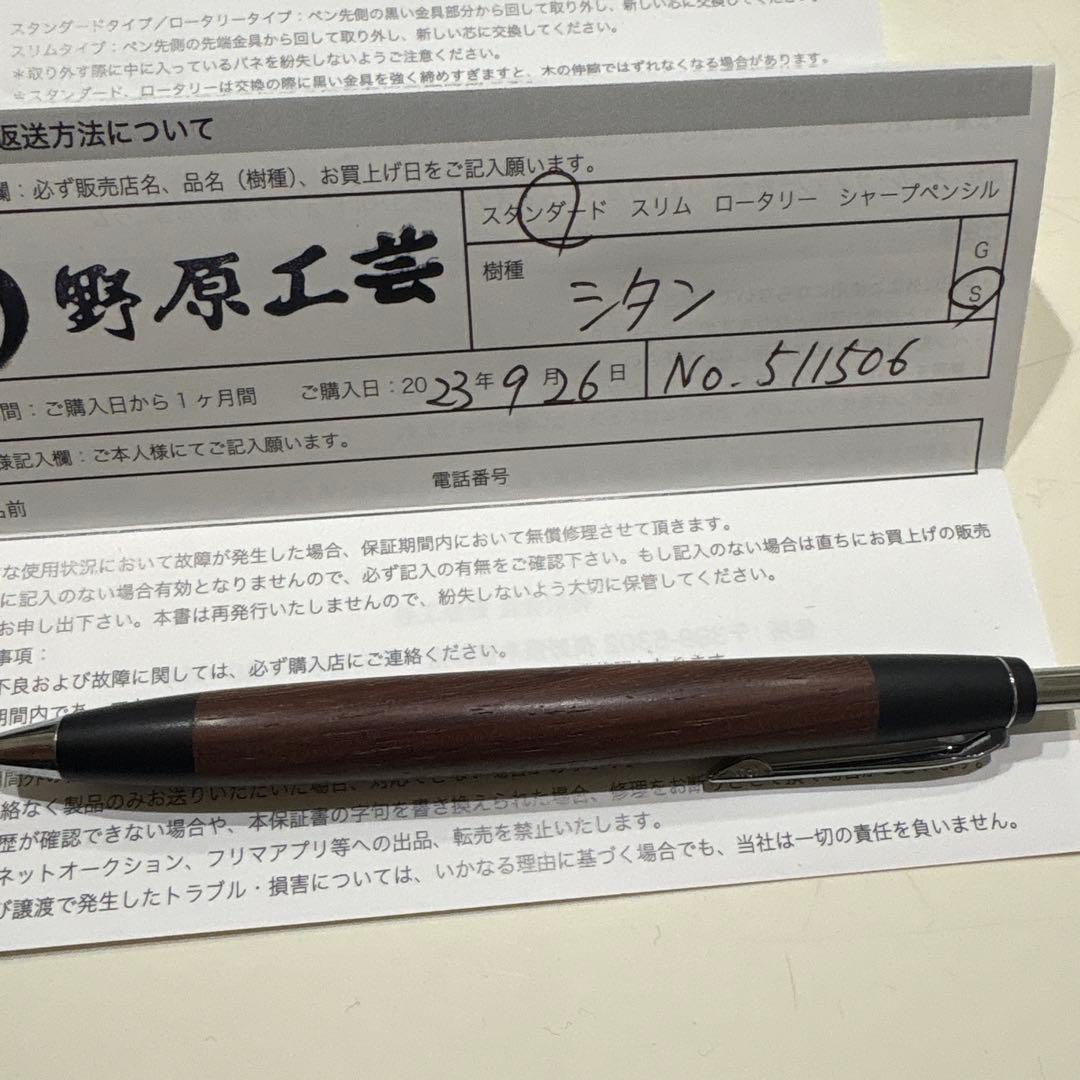 スタンダードタイプ／ロータリータイプ：ペン先側の黒い金具部分から回して取り外し、新しい芯に交換してください。
スリムタイプ：ペン先側の先端金具から回して取り外し、新しい芯に交換してください。
＊取り外す際に中に入っているバネを紛失しないようご注意ください。
＊スタンダード、ロータリーは交換の際に黒い金具を強く締めすぎますと、木の伸縮ではずれなくなる場合があります。
返送方法について
欄：必ず販売店名、品名（樹種）、お買上げ日をご記入願います。
スタンダード スリム ロータリー シャープペンシル
野原工芸
樹種 シタン
G
S
間：ご購入日から１ヶ月間 ご購入日：2023年9月26日 No.511506
様記入欄：ご本人様にてご記入願います。
名前 電話番号
な使用状況において故障が発生した場合、保証期間内において無償修理させて頂きます。
に記入のない場合有効となりませんので、必ず記入の有無をご確認下さい。もし記入のない場合は直ちにお買上げの販売
お申し出下さい。本書は再発行いたしませんので、紛失しないよう大切に保管してください。
事項：
不良および故障に関しては、必ず購入店にご連絡ください。
期間内であ
絡なく製品のみお送りいただいた場合、対応
歴が確認できない場合や、本保証書の字句を書き換えられた場合、修理をお断り
ネットオークション、フリマアプリ等への出品、転売を禁止いたします。
び譲渡で発生したトラブル・損害については、いかなる理由に基づく場合でも、当社は一切の責任を負いません。